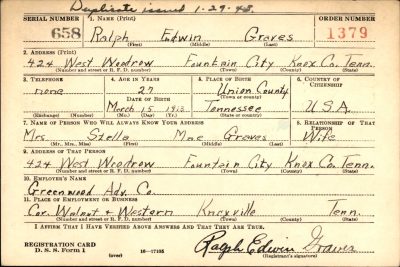 Duplicate issued 1-29-43.
SERIAL NUMBER 1. NAME (Print) ORDER NUMBER
658 Ralph Edwin Graves 1379
(First) (Middle) (Last)
2. ADDRESS (Print)
424 West Woodrow Fountain City Knox Co. Tenn.
(Number and street or R. F. D. number) (Town) (County) (State)
3. TELEPHONE 4. AGE IN YEARS 5. PLACE OF BIRTH 6. COUNTRY OF CITIZENSHIP
none 27 Union County
DATE OF BIRTH (Town or county)
March 15, 1913 Tennessee U.S.A.
(Exchange) (Number) (Mo.) (Day) (Yr.) (State or country)
7. NAME OF PERSON WHO WILL ALWAYS KNOW YOUR ADDRESS 8. RELATIONSHIP OF THAT PERSON
Mrs. Stella Mae Graves Wife
(Mr., Mrs., Miss) (First) (Middle) (Last)
9. ADDRESS OF THAT PERSON
424 West Woodrow Fountain City Knox Co. Tenn.
(Number and street or R. F. D. number) (Town) (County) (State)
10. EMPLOYER'S NAME
Greenwood Adv. Co.
11. PLACE OF EMPLOYMENT OR BUSINESS
Cor. Walnut & Western Knxville Tenn.
(Number and street or R. F. D. number) (Town) (County) (State)
I AFFIRM THAT I HAVE VERIFIED ABOVE ANSWERS AND THAT THEY ARE TRUE.
REGISTRATION CARD
D. S. S. Form 1 (over) 16-17105 Ralph Edwin Graves
(Registrant's signature)